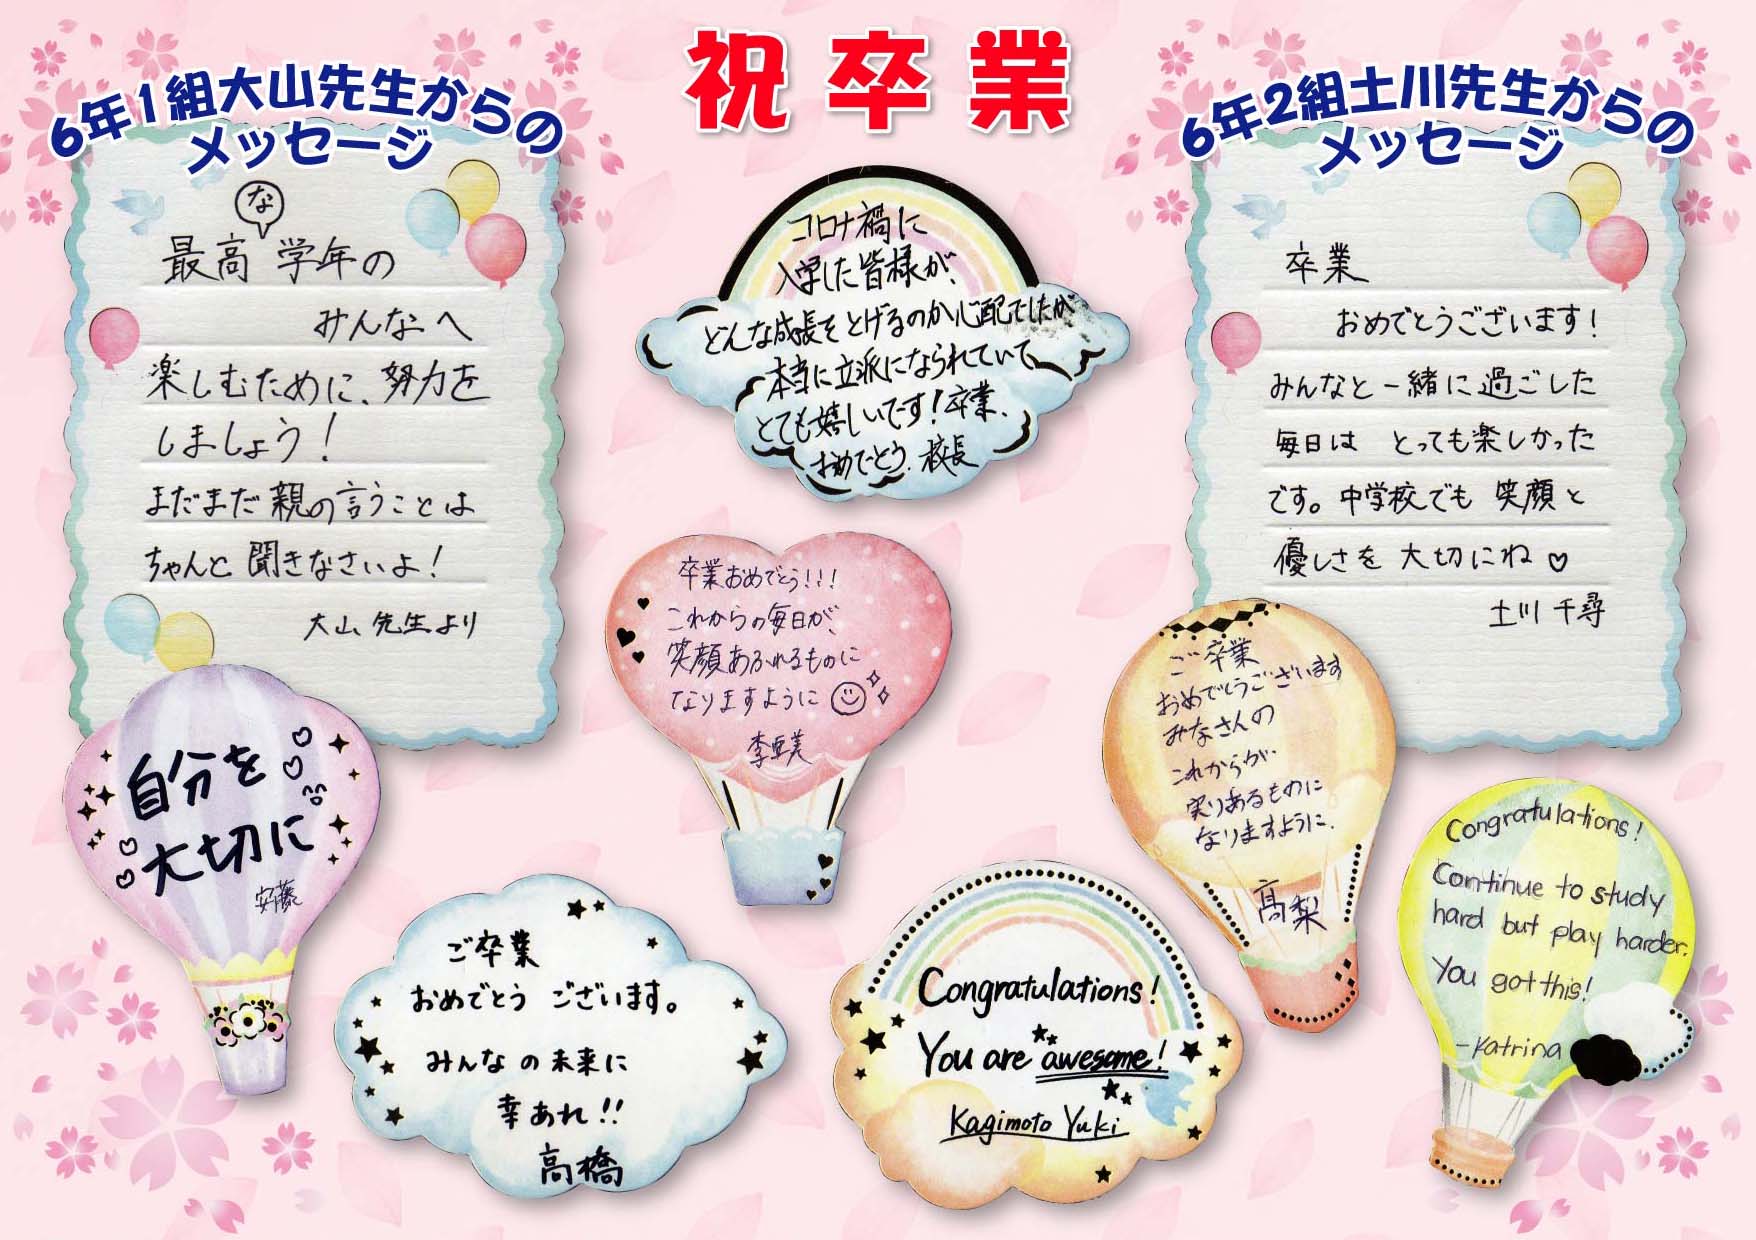 祝卒業
6年1組大山先生からの
メッセージ
な
最高 学年の
みんなへ
楽しむために、努力を
しましょう!
まだまだ親の言うことは
ちゃんと聞きなさいよ!
大山 先生より
コロナ禍に
入学した皆様が、
どんな成長をとげるのか心配でしたが
本当に立派になられていて、
とても嬉しいです!卒業、
おめでとう。校長
6年2組土川先生からの
メッセージ
卒業
おめでとうございます!
みんなと一緒に過ごした
毎日は とっても楽しかった
です。中学校でも 笑顔と
優しさを 大切にね♡
土川 千尋
卒業おめでとう!!!
これからの毎日が、
笑顔あふれるものに
なりますように
李亜美
ご卒業
おめでとうございます
みなさんの
これからが
実りあるものに
なりますように。
高梨
自分を
大切に
安藤
ご卒業
おめでとう ございます。
みんなの未来に
幸あれ!!
高橋
Congratulations!
You are awesome!
Kagimoto Yuki
Congratulations!
Continue to study
hard but play harder.
You got this!
-Katrina